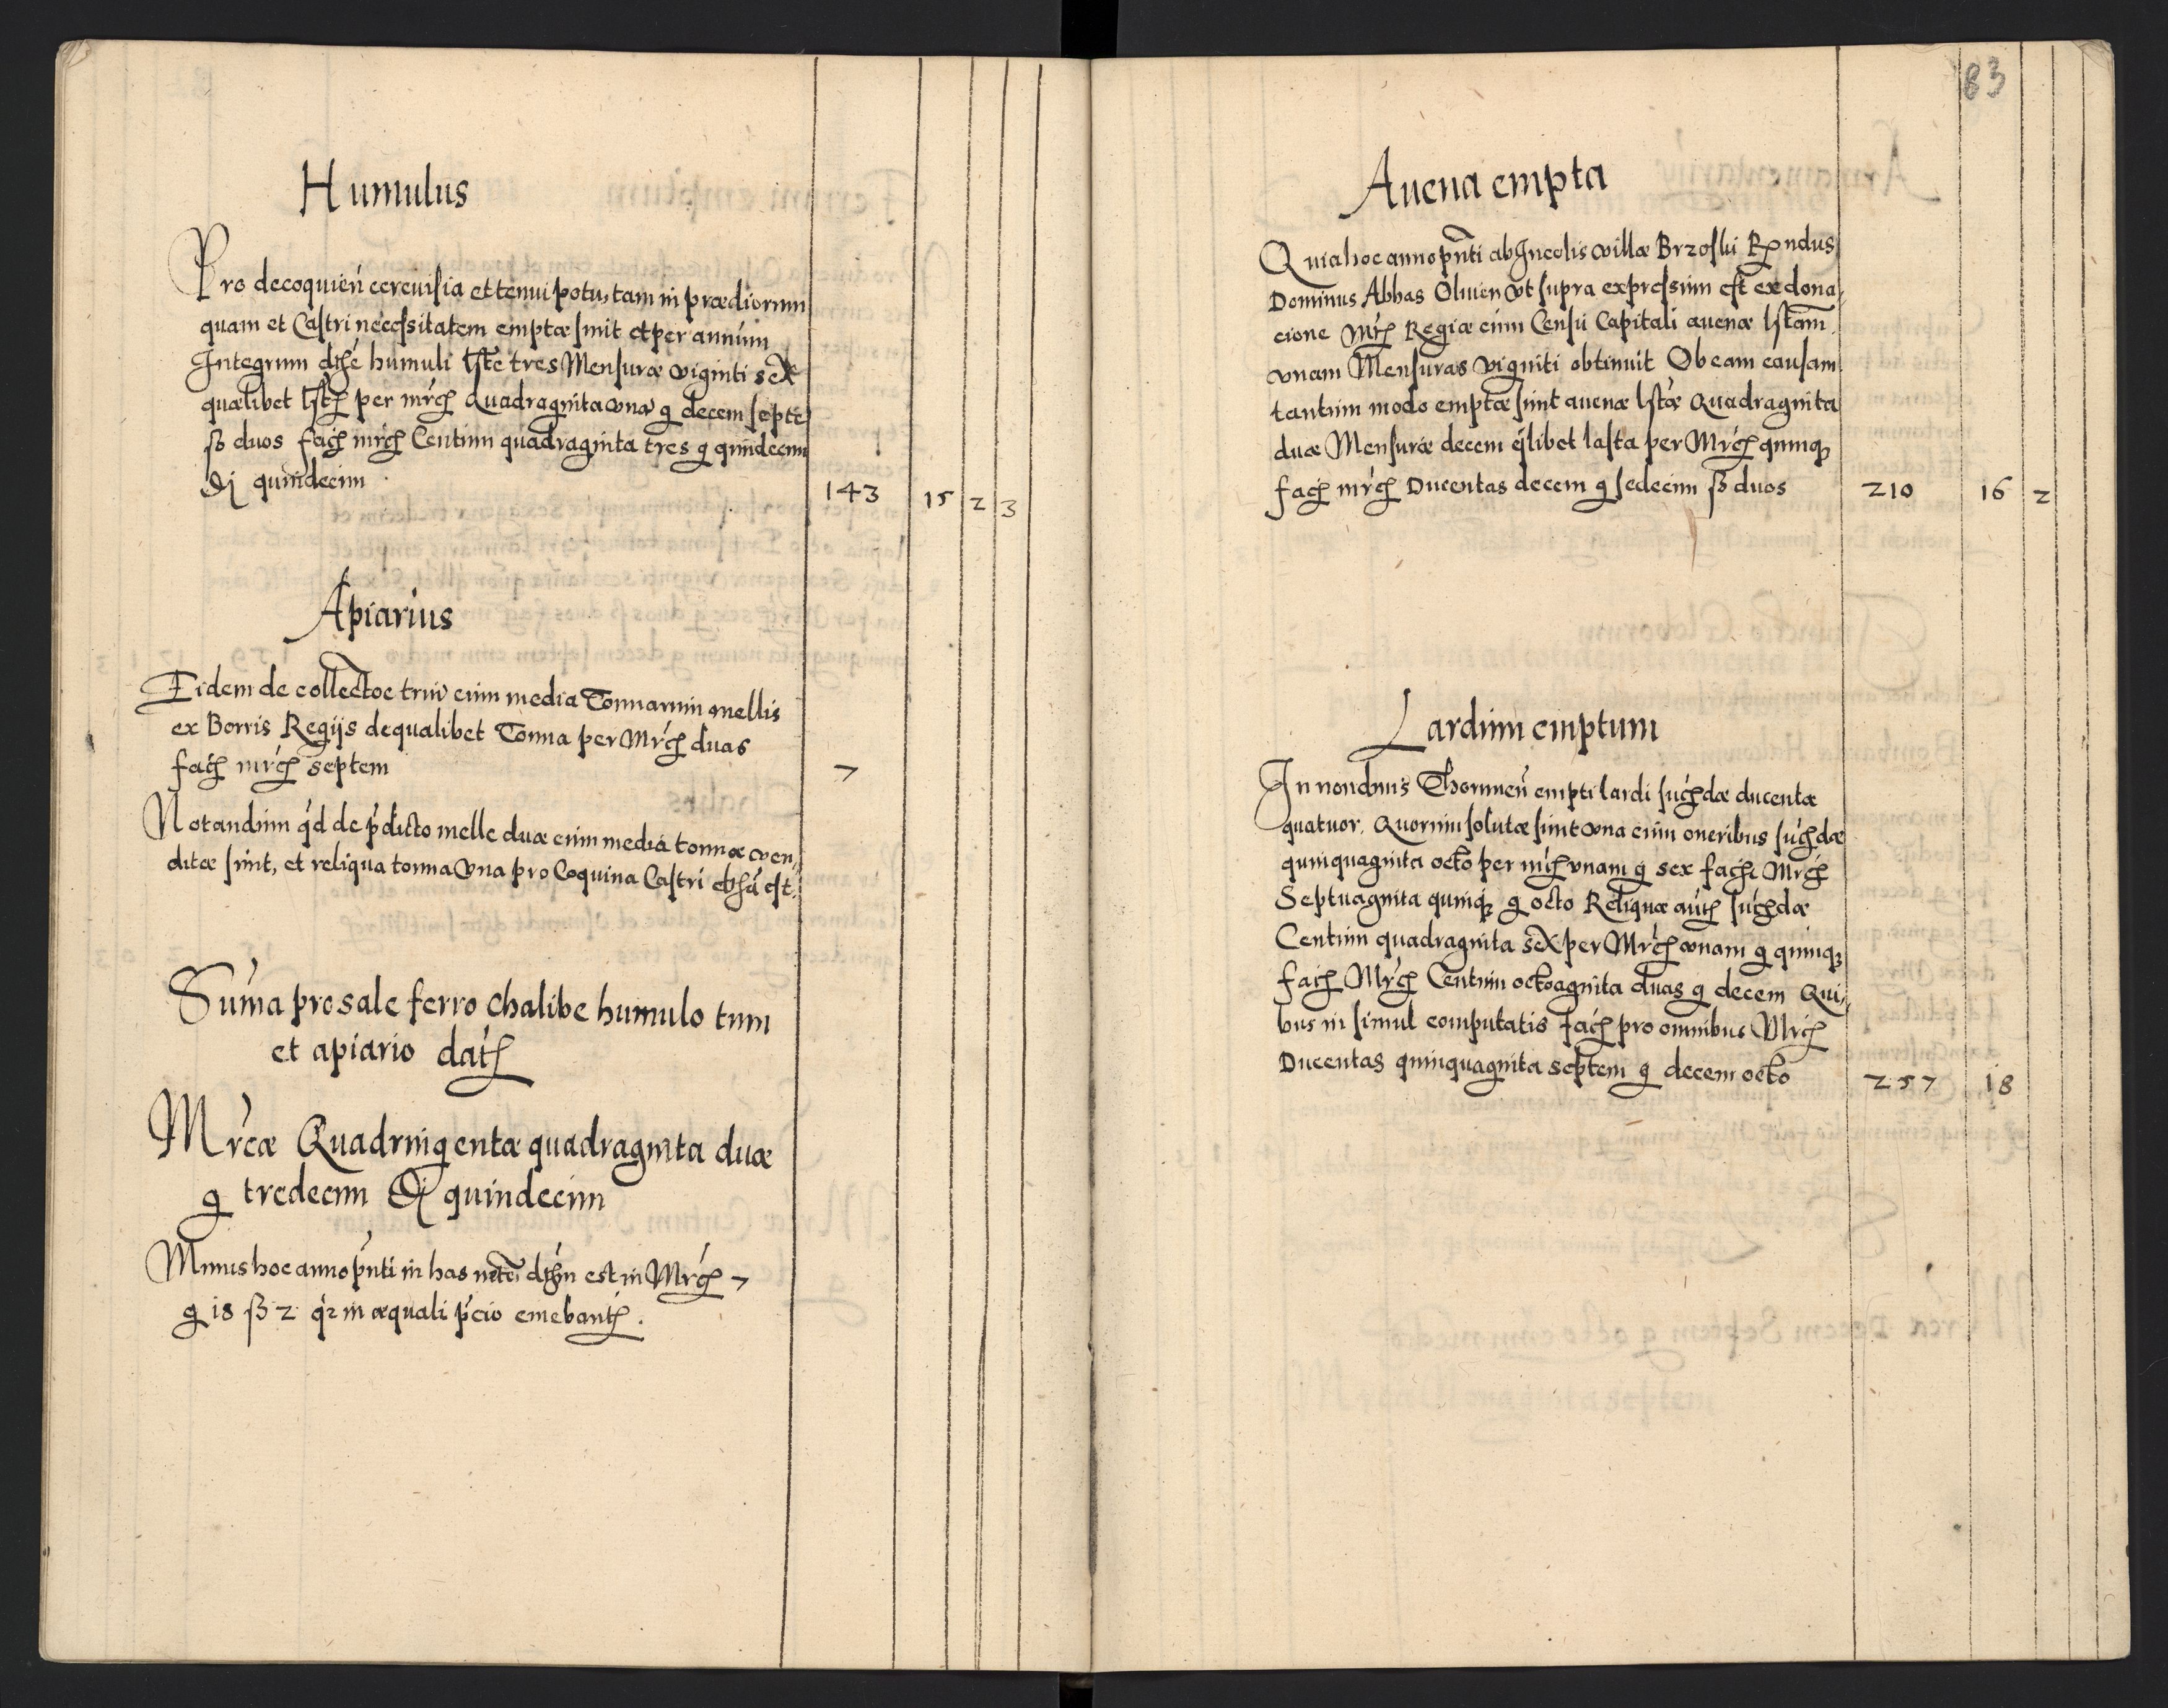 Humulus
Pro decoquien̄ cerevisia et tenui potu, tam in prædiorum
quam et Castri necessitatem emptæ sunt et per annum
Integrum humuli tres Mensuræ viginti sex
quælibet per mrcͥ Quadraginta una g decem septē
ß duos facͥ mrcͥ Centum quadraginta tres g quindecim
quindecim
143 15 2 3
Apiarius
Eidem de collectoe triū cum media Tonnarum mellis
ex Borris Regijs de qualibet Tonna per Mrcͥ duas
facͥ mrcͥ septem
7
Notandum qd de pdicto melle duæ cum media tonnæ ven,
ditæ sunt, et reliqua tonna una pro Coquina Castri est.
Sūma pro sale ferro Chalibe humulo tum
et apiario datͥ
Mrcæ Quadringentæ quadraginta duæ
g tredecim quindecim
Minus hoc anno pñti in has est in Mrcͥ 7
g 18 ß 2 in æquali pcio emebantͥ.
83
Auena empta
Quia hoc anno pñti ab Incolis villæ Brzoski Rndus
Dominus Abbas Oliuen̄ ut supra expressum est ex dona,
cione Mtͥ Regiæ cum Censu Capitali auenæ lstam
vnam Mensuras viginti obtinuit Ob eam causam
tantum modo emptæ sunt auenæ lstæ Quadraginta
duæ Mensuræ decem qlibet lasta per Mrcͥ quinqꝫ
facͥ mrcͥ Ducentas decem g sedecim ß duos
210 16 2
Lardum emptum
In nondinis Thorunen̄ empti lardi ducentæ
quatuor. Quorum solutæ sunt una cum oneribus
quinquaginta octo per mrcͥ vnam g sex facͥ Mrcͥ
Septuaginta quinqꝫ g octo Reliquæ autͥ
Centum quadraginta sex per Mrcͥ vnam g quinqꝫ
facͥ Mrcͥ Centum octoaginta duas g decem Qui,
bus in simul computatis facͥ pro omnibus Mrcͥ
Ducentas quinquaginta septem g decem octo
257 18